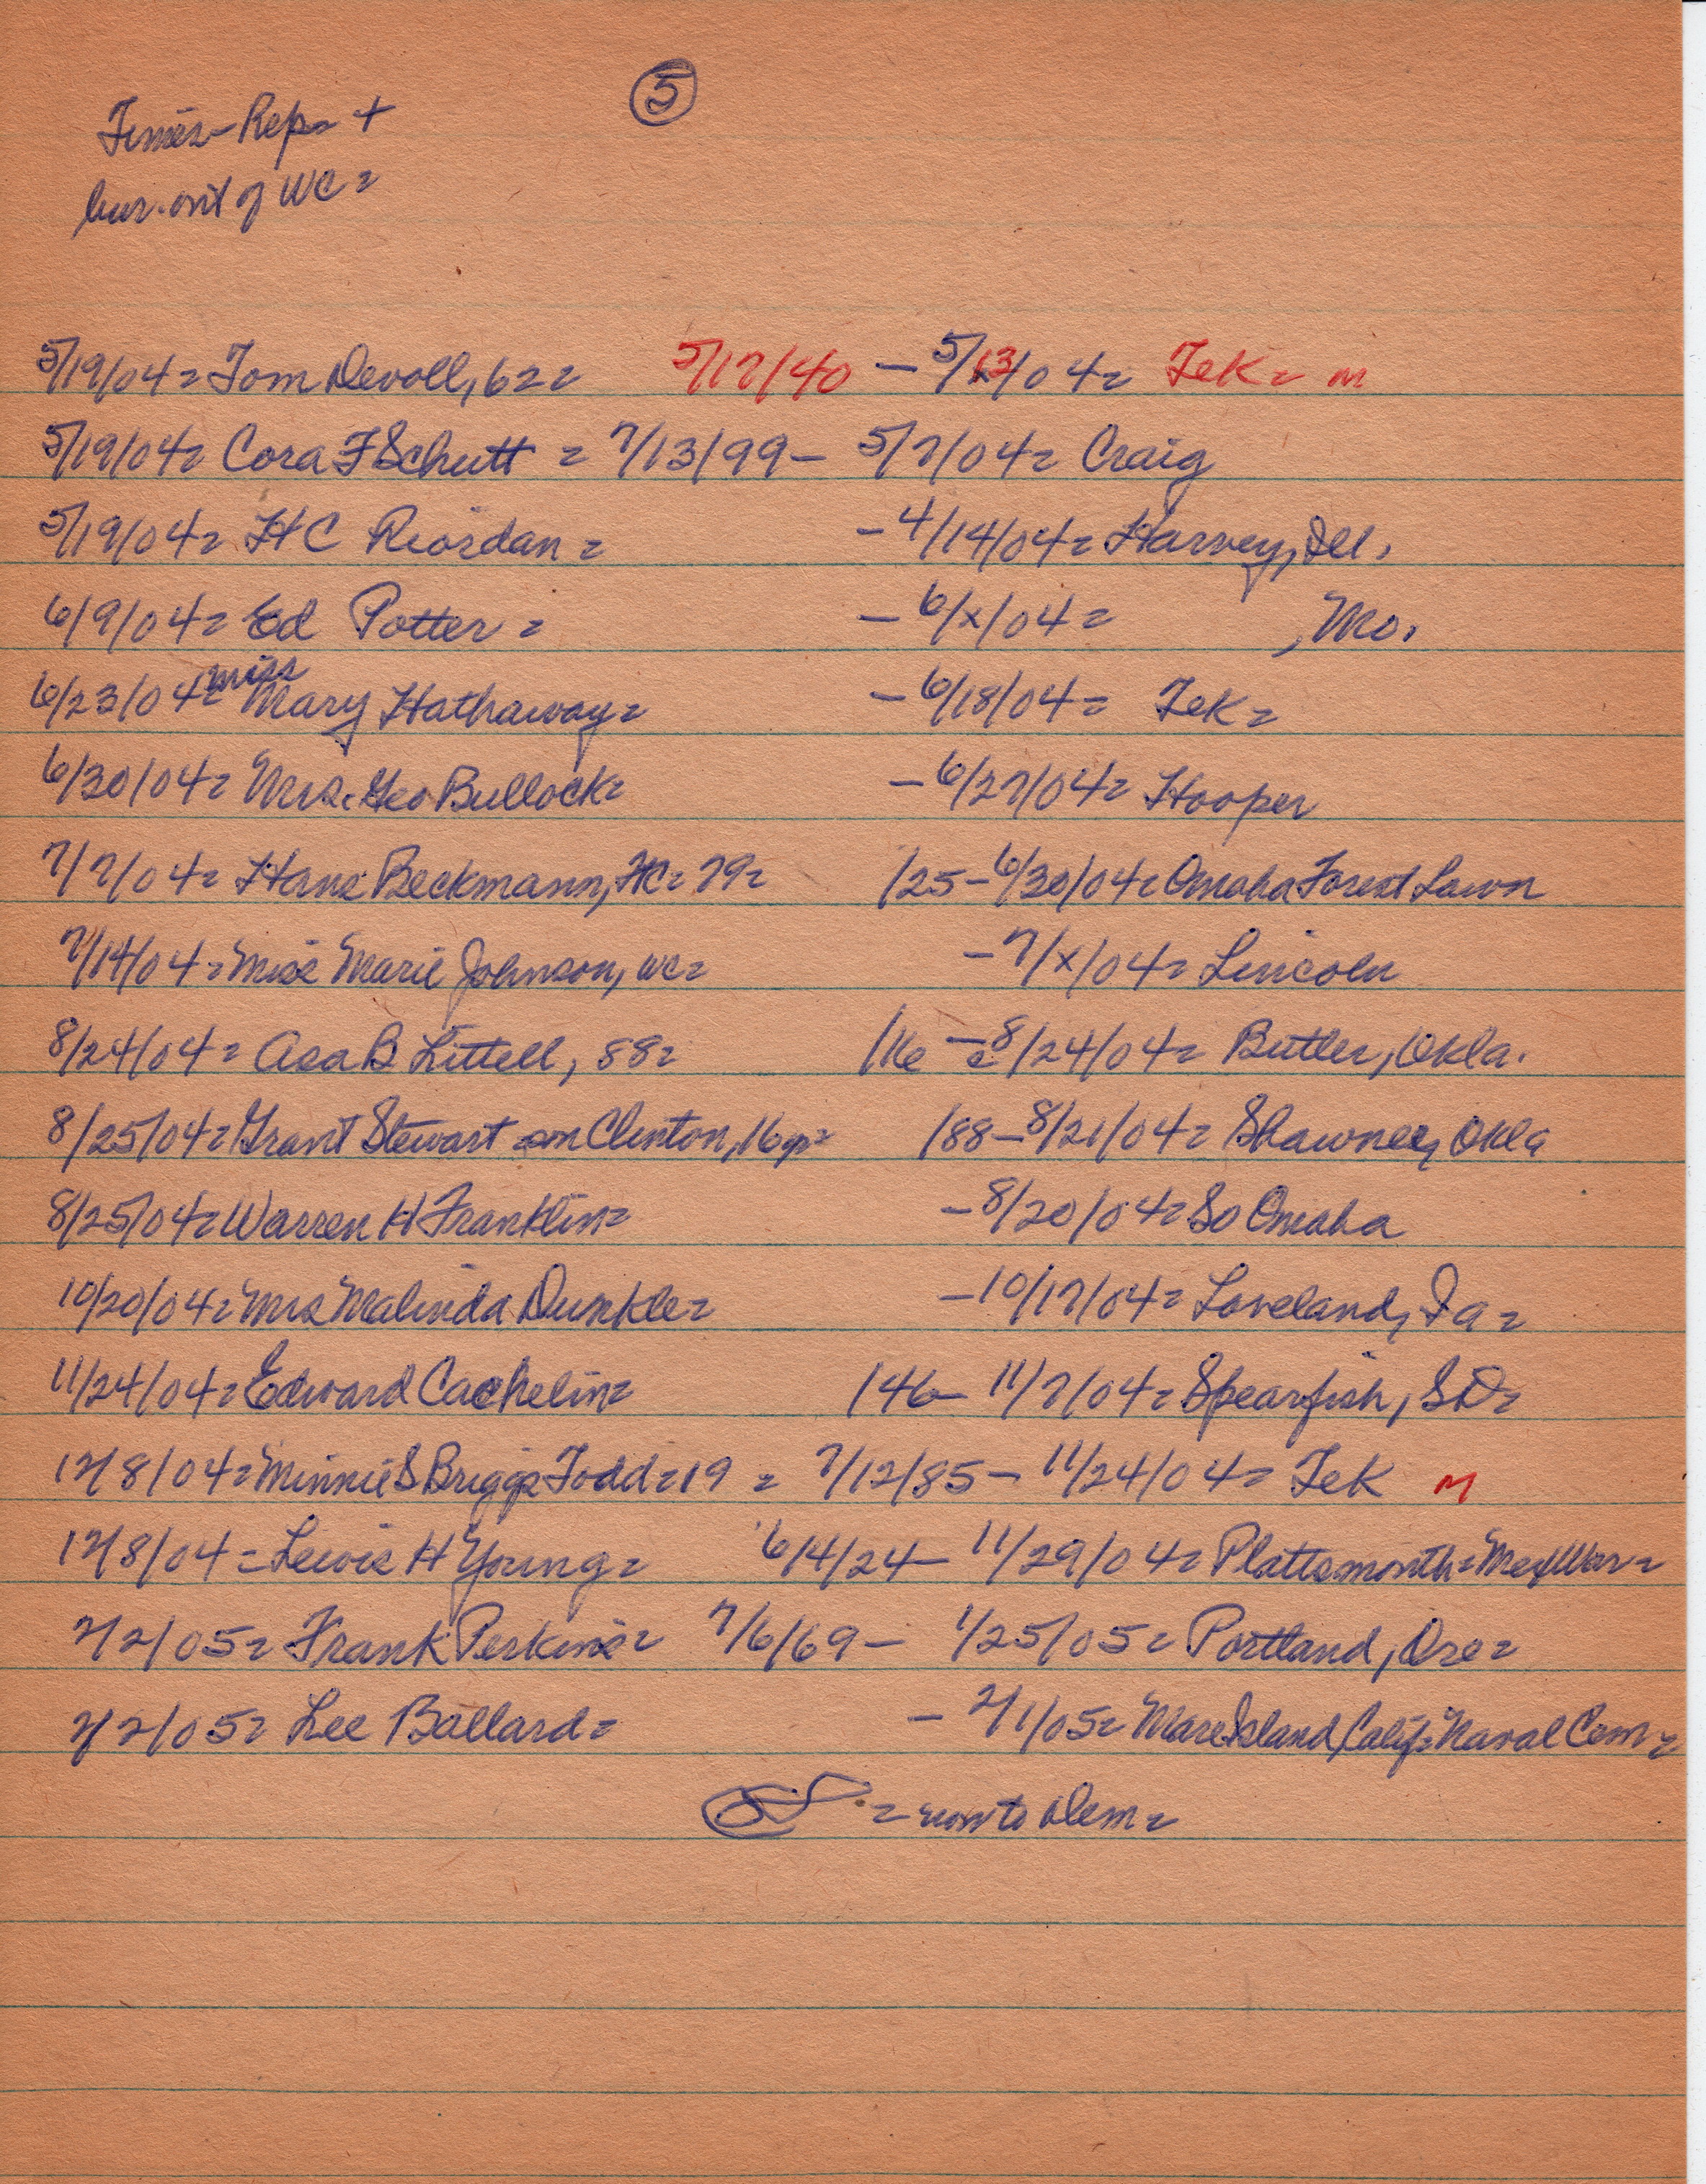 5
Times-Rep= +
bur. out of WC=
5/19/04= Tom Devoll, 62= 5/17/40 – 5/13/04= Tek= m
5/19/04= Cora F Schutt = 7/13/99 – 5/7/04= Craig
5/19/04= HC Riordan = – 4/14/04= Harvey, Ill.
6/9/04= Ed Potter = – 6/x/04= , Mo.
6/23/04= Miss Mary Hathaway= – 6/18/04= Tek=
6/30/04= Mrs. Geo Bullock= – 6/27/04= Hooper
7/7/04= Hans Beckmann, HC= 79= /25 – 6/30/04= Omaha Forest Lawn
7/14/04= Miss Marie Johnson, WC= – 7/x/04= Lincoln
8/24/04= Asa B Littell, 88= /16 – 8/24/04= Butler, Okla.
8/25/04= Grant Stewart son Clinton, 16 yr= /88 – 8/21/04= Shawnee, Okla
8/25/04= Warren H Franklin= – 8/20/04= So Omaha
10/20/04= Mrs Malinda Dunkle= – 10/17/04= Loveland, Ia=
11/24/04= Edward Cachelin= /46 – 11/7/04= Spearfish, SD=
12/8/04= Minnie S Briggs Todd= 19 = 7/12/85 – 11/24/04= Tek M
12/8/04= Lewis H Young= 6/4/24 – 11/29/04= Plattsmouth= Mex War=
2/2/05= Frank Perkins= 7/6/69 – 1/25/05= Portland, Ore=
2/2/05= Lee Ballard= – 2/1/05= Mare Island, Calif= Naval Cem=
= now to Dem=